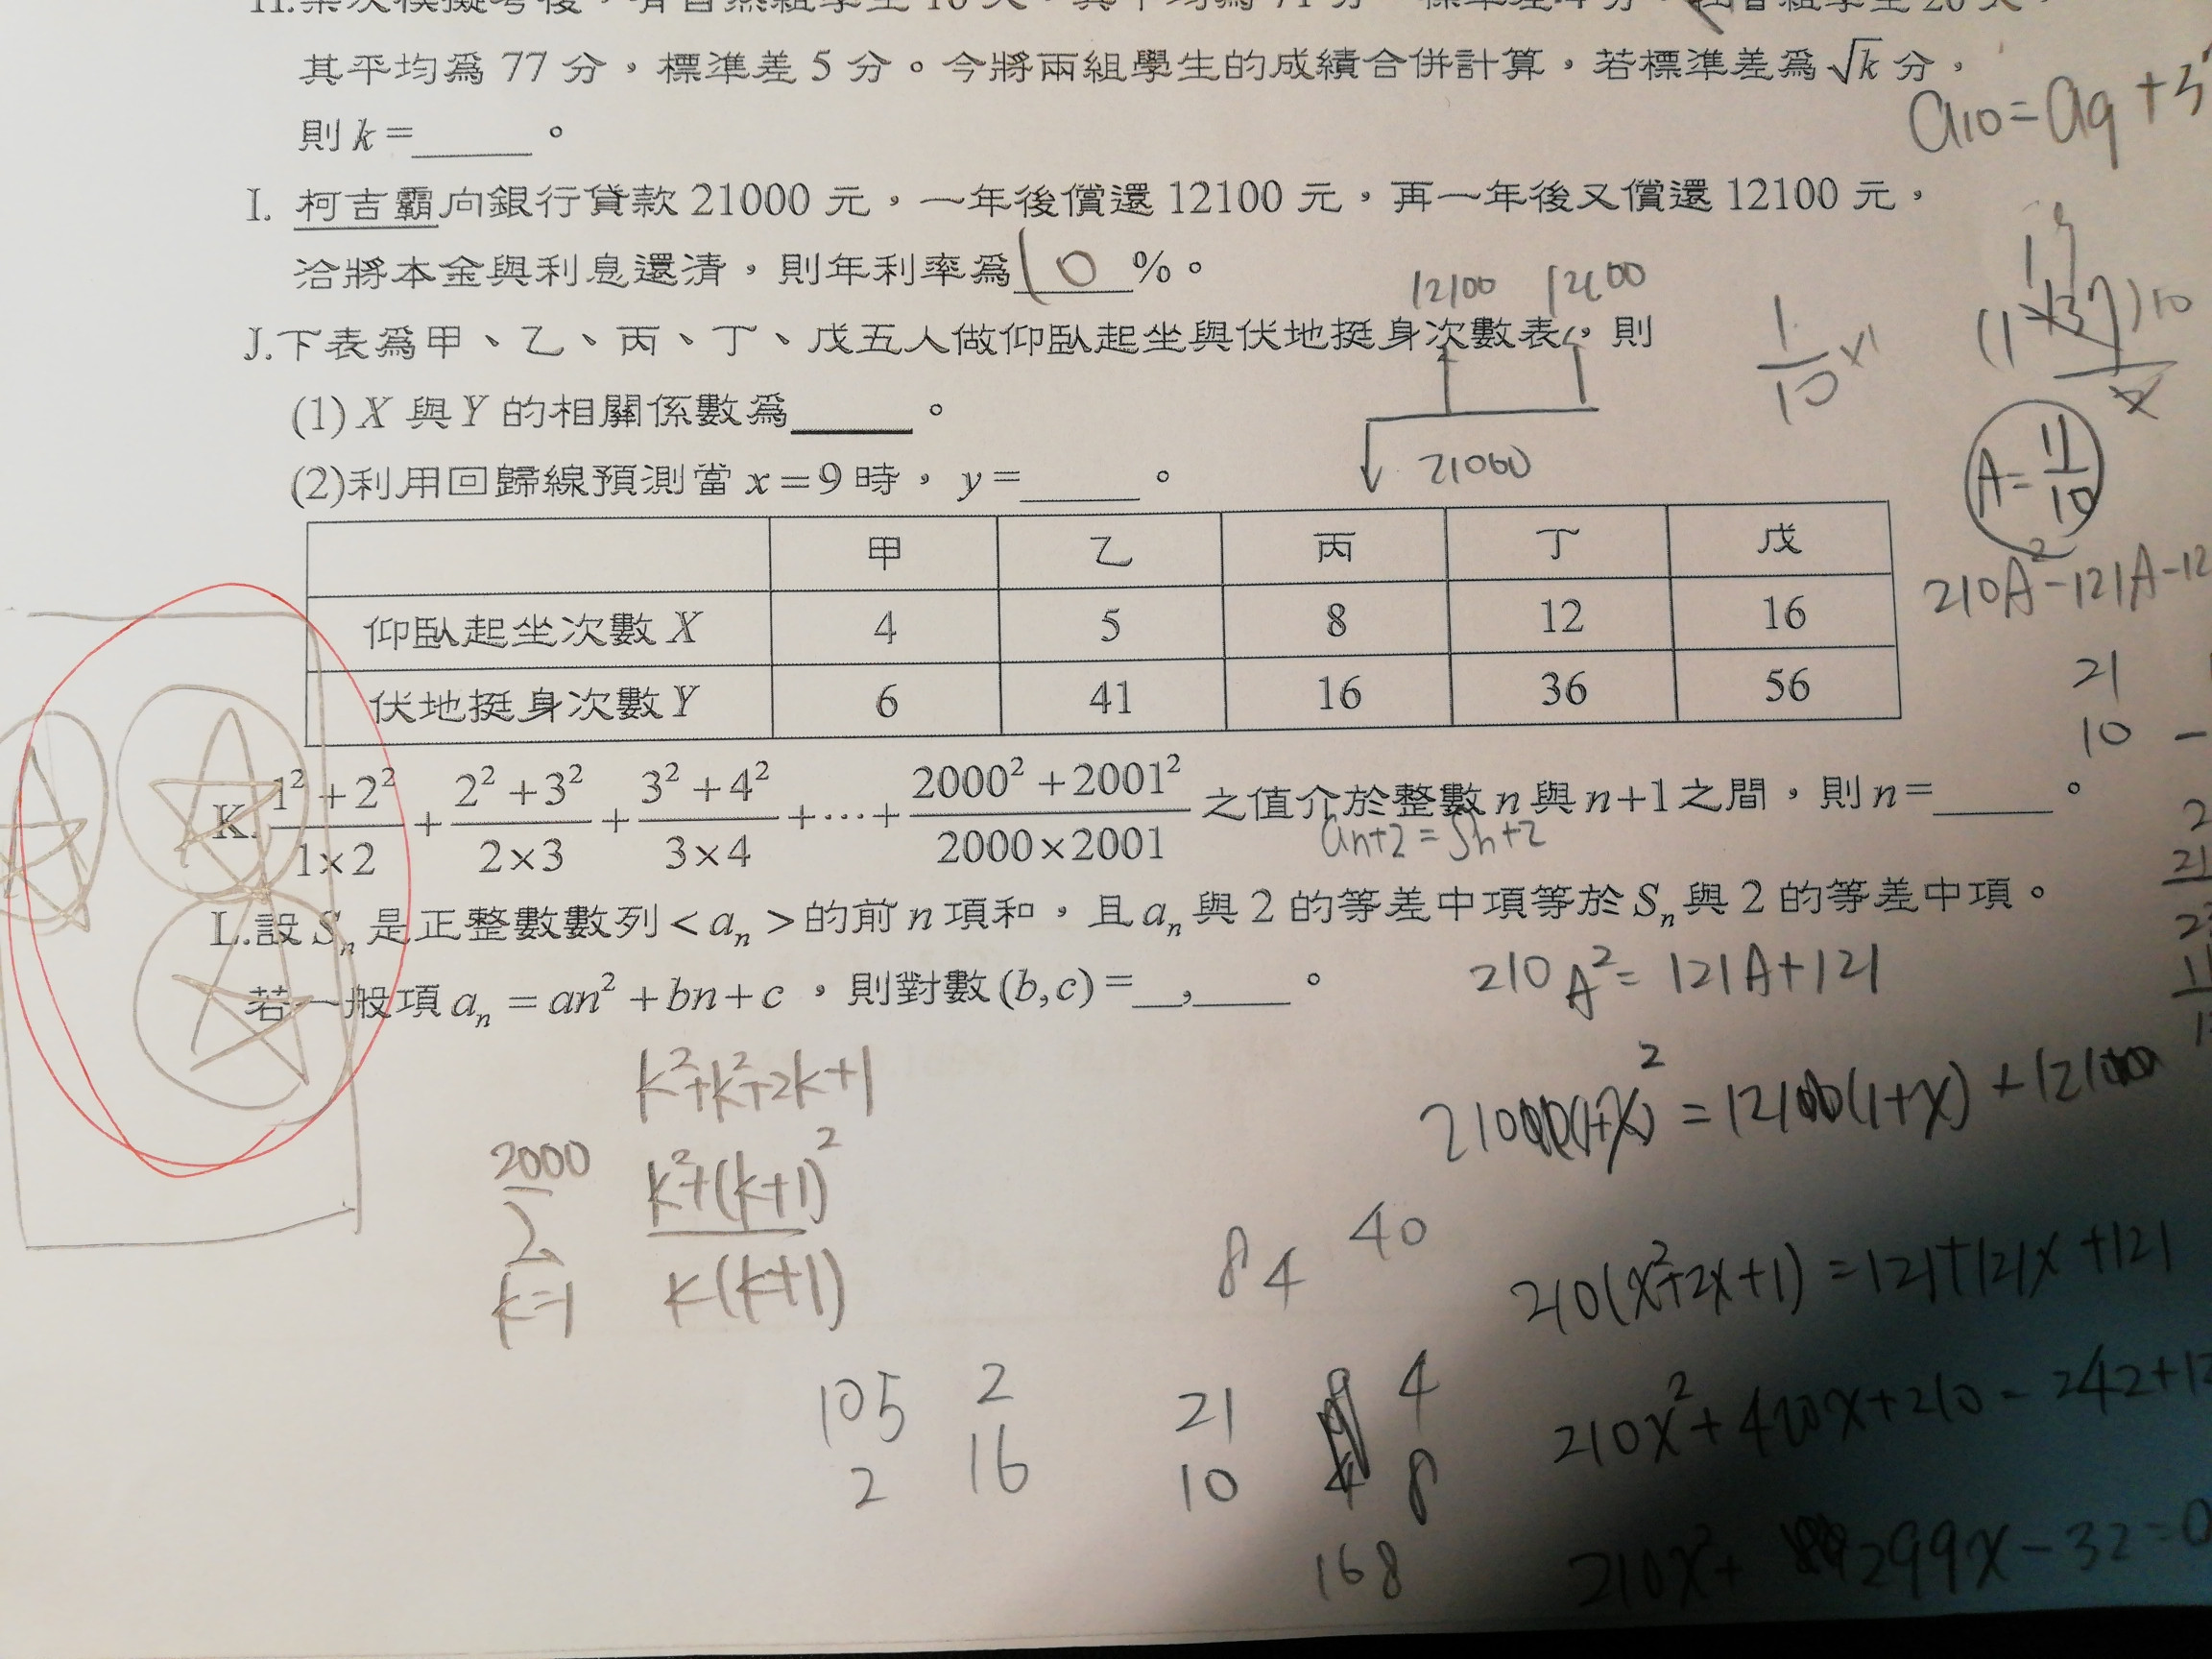 其平均為 77 分，標準差 5 分。今將兩組學生的成績合併計算，若標準差為 √k 分，
則 k = ______ 。
a10 = a9 + 3
I. 柯吉霸向銀行貸款 21000 元，一年後償還 12100 元，再一年後又償還 12100 元，
洽將本金與利息還清，則年利率為 10 %。
12100 12100
J.下表為甲、乙、丙、丁、戊五人做仰臥起坐與伏地挺身次數表，則
1/10 x1
(1) X 與 Y 的相關係數為______ 。
(2)利用回歸線預測當 x = 9 時， y = ______ 。
21000
A = 11/10
甲 乙 丙 丁 戊
仰臥起坐次數 X 4 5 8 12 16
伏地挺身次數 Y 6 41 16 36 56
210A² - 121A - 12
21
10 -
K. (1² + 2²)/(1×2) + (2² + 3²)/(2×3) + (3² + 4²)/(3×4) + ⋯ + (2000² + 2001²)/(2000×2001) 之值介於整數 n 與 n+1 之間，則 n = ______ 。
an+2 = Sn+2
L.設 Sₙ 是正整數數列 < aₙ > 的前 n 項和，且 aₙ 與 2 的等差中項等於 Sₙ 與 2 的等差中項。
若一般項 aₙ = an² + bn + c ，則對數 (b, c) = __,____ 。
210A² = 121A + 121
k² + k² + 2k + 1
21000(1+x)² = 12100(1+x) + 12100
2000 Σ k=1 (k² + (k+1)²)/(k(k+1))
84 40
210(x²+2x+1) = 121+121x+121
105 2 21 4
2 16 10 8
168
210x² + 299x - 32 = 0